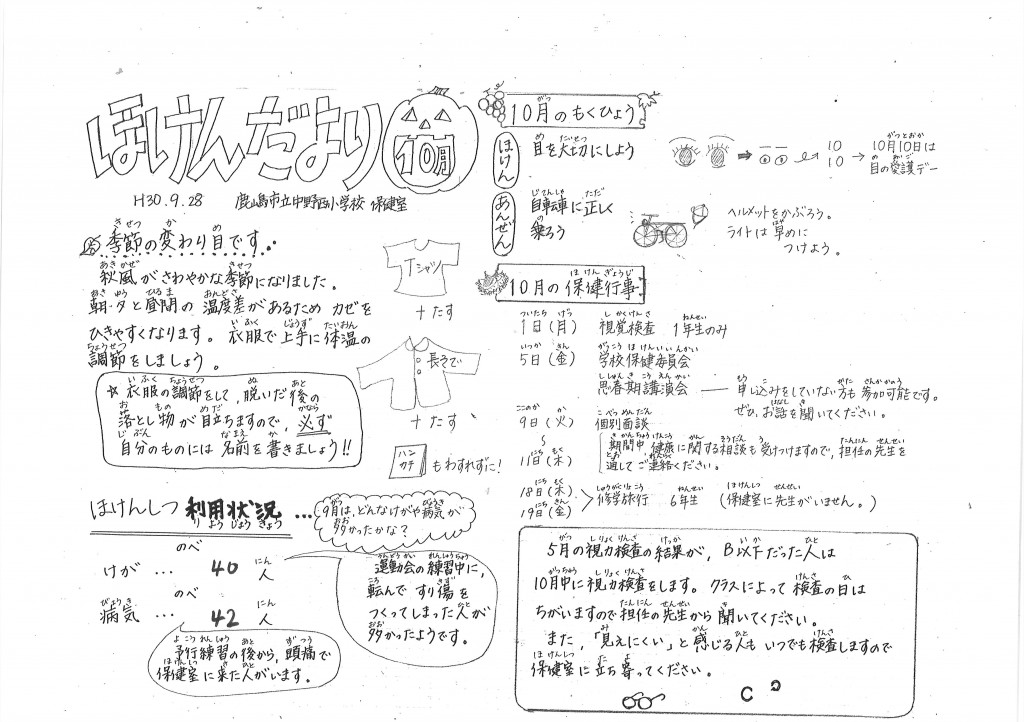 ほけんだより
10月
H30.9.28 鹿島市立中野西小学校 保健室
季節の変わり目です。
秋風がさわやかな季節になりました。
朝・夕と昼間の温度差があるため カゼを
ひきやすくなります。衣服で上手に体温の
調節をしましょう。
Tシャツ
+たす
長そで
+たす
ハンカチ
もわすれずに!
☆衣服の調節をして、脱いだ後の
落とし物が目立ちますので、必ず
自分のものには名前を書きましょう!!
ほけんしつ 利用状況...
9月は、どんなけがや病気が
多かったかな?
のべ
けが … 40人
のべ
病気 … 42人
運動会の練習中に、
転んですり傷を
つくってしまった人が
多かったようです。
予行練習の後から、頭痛で
保健室に来た人がいます。
10月のもくひょう
ほけん
目を大切にしよう
10
10
10月10日は
目の愛護デー
あんぜん
自転車に正しく
乗ろう
ヘルメットをかぶろう。
ライトは早めに
つけよう。
10月の保健行事
1日(月) 視覚検査 1年生のみ
5日(金) 学校保健委員会
思春期講演会 ― 申し込みをしていない方も参加可能です。
ぜひ、お話を聞いてください。
9日(火) 個別面談
〜
期間中 健康に関する相談も受けつけますので、担任の先生を
11日(木) 通してご連絡ください。
18日(木)
19日(金)
修学旅行 6年生 (保健室に先生がいません。)
5月の視力検査の結果が、B以下だった人は
10月中に視力検査をします。クラスによって検査の日は
ちがいますので担任の先生から聞いてください。
また、「見えにくい」と感じる人もいつでも検査しますので
保健室に立ち寄ってください。
C